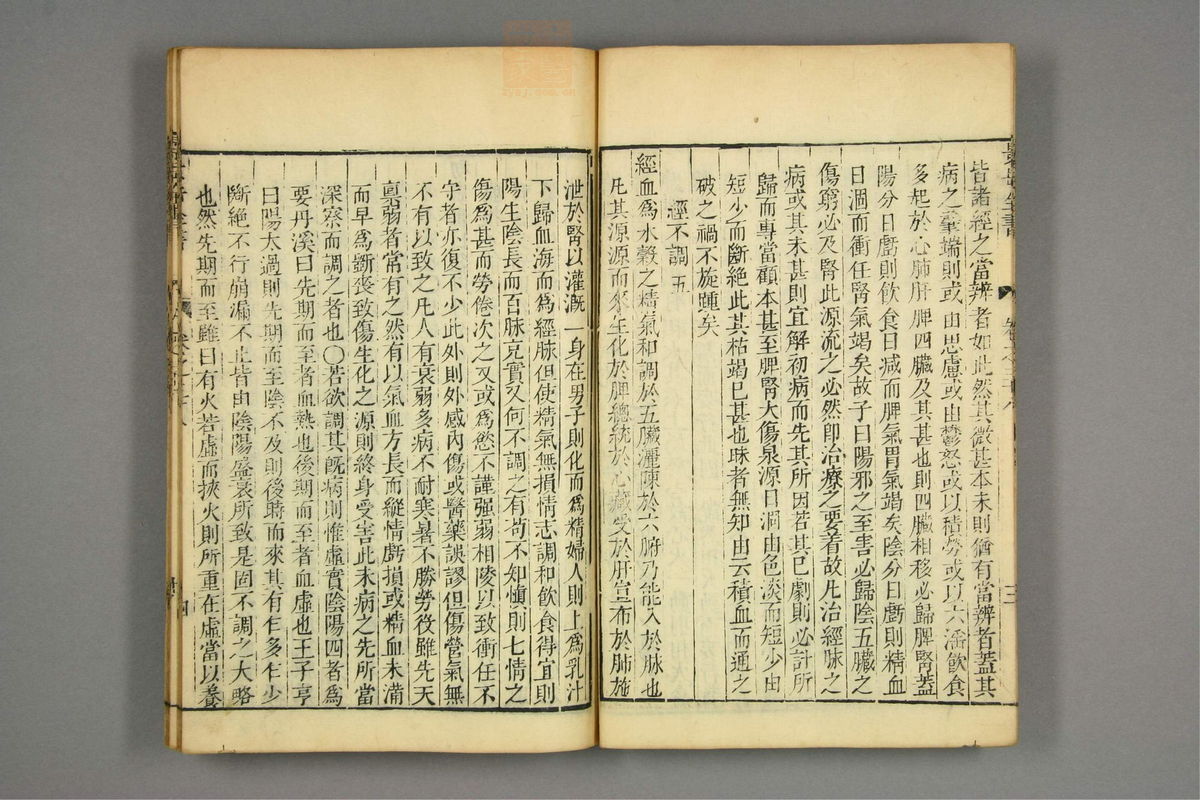 皆諸經之當辨者如此然其微甚本末則猶有當辨者蓋其
病之肇端則或由思慮或由鬱怒或以積勞或以六淫飲食
多起於心肺肝脾四臟及其甚也則四臟相移必歸脾腎蓋
陽分日虧則飲食日減而脾氣胃氣竭矣陰分日虧則精血
日涸而衝任腎氣竭矣故予曰陽邪之至害必歸陰五臟之
傷窮必及腎此源流之必然即治療之要着故凡治經脉之
病或其未甚則宜解初病而先其所因若其已劇則必計所
歸而專當顧本甚至脾腎大傷泉源日涸由色淡而短少由
短少而斷絕此其枯竭已甚也昧者無知由云積血而通之
破之禍不旋踵矣
經不調 五
經血為水穀之精氣和調於五臟灑陳於六腑乃能入於脉也
凡其源源而來生化於脾總統於心藏受於肝宣布於肺施
泄於腎以灌溉一身在男子則化而爲精婦人則上爲乳汁
下歸血海而爲經脉但使精氣無損情志調和飲食得宜則
陽生陰長而百脉充實又何不調之有苟不知慎則七情之
傷爲甚而勞倦次之又或爲慾不謹强弱相陵以致衝任不
守者亦復不少此外則外感內傷或醫藥誤謬但傷營氣無
不有以致之凡人有衰弱多病不耐寒暑不勝勞役雖先天
稟弱者常有之然有以氣血方長而縱情虧損或精血未滿
而早爲斵喪致傷生化之源則終身受害此未病之先所當
深察而調之者也〇若欲調其既病則惟虛實陰陽四者爲
要丹溪曰先期而至者血熱也後期而至者血虛也王子亨
曰陽太過則先期而至陰不及則後時而來其有乍多乍少
斷絕不行崩漏不止皆由陰陽盛衰所致是固不調之大略
也然先期而至雖曰有火若虛而挾火則所重在虛當以養